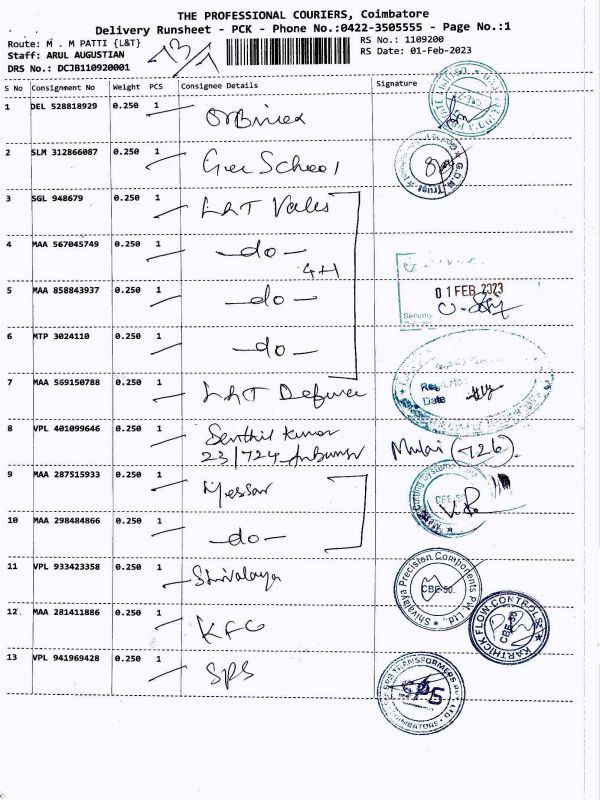 THE PROFESSIONAL COURIERS, Coimbatore
Delivery Runsheet - PCK - Phone No.:0422-3505555 - Page No.:1
Route: M . M PATTI {L&T}
Staff: ARUL AUGUSTIAN
DRS No.: DCJB110920001
13/1
RS No.: 1109200
RS Date: 01-Feb-2023
S No Consignment No Weight PCS Consignee Details Signature
1 DEL 528818929 0.250 1
2 SLM 312866087 0.250 1 School
3 SGL 948679 0.250 1 L&T Valves
4 MAA 567045749 0.250 1 -do-
4H
5 MAA 858843937 0.250 1 -do-
01 FEB 2023
Security
6 MTP 3024110 0.250 1 -do-
7 MAA 569150788 0.250 1 L&T Defence
Date
8 VPL 401099646 0.250 1 Senthil Kumar
23/724
Mulai (726)
9 MAA 287515933 0.250 1
10 MAA 298484866 0.250 1 -do-
11 VPL 933423358 0.250 1 Shivalaya
Shivalaya Precision Components Pvt. Ltd.
CBE-50.
12 MAA 281411886 0.250 1 KFC
KARTHICK FLOW CONTROLS
CBE-50
13 VPL 941969428 0.250 1 SPS
SPS TRANSFORMERS PVT LTD
COIMBATORE